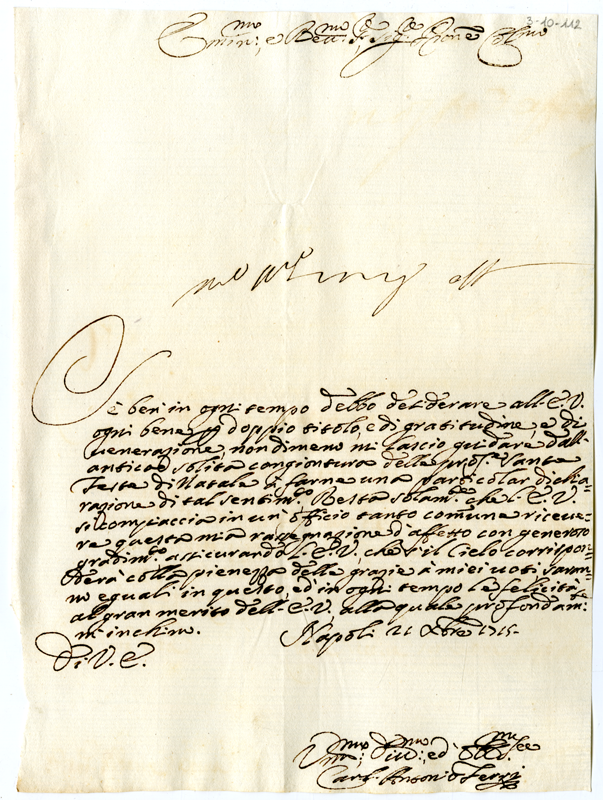 3-10-112
Emin:mo e Rev:mo Sig:re Sig:re Pron:e Col:mo
Se ben in ogni tempo debbo desiderare all'E.V.
ogni bene p doppio titolo, e di gratitudine, e di
venerazione, nondimeno mi lascio guidare dall'
antica, e solita congiontura delle pross:e Sante
Feste di Natale à farne una particolar dichia=
razione di tal sentim:to. Resta solam:te che l'E.V.
si compiaccia in un'officio tanto comune riceve=
re questa mia rassegnazione d'affetto con generoso
gradim:to assicurando l'E.V., che se il Cielo corrispon=
derà colla pienezza delle grazie à miei voti saran=
no eguali in questo, ed in ogni tempo le felicità
al gran merito dell'E.V. alla quale profondam:te
m'inchino. Napoli 21 Xbre 1715.
Di V.E.
Um:mo Div:mo ed Obl:mo See
Carl'Antonio Terzi